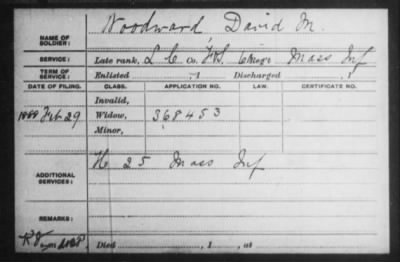 NAME OF SOLDIER: Woodward, David M.
SERVICE: Late rank, L C Co. F&S, 6 Reg't Mass Inf
TERM OF SERVICE: Enlisted , 1 Discharged , 1
DATE OF FILING. CLASS. APPLICATION NO. LAW. CERTIFICATE NO.
Invalid,
1888 Feb 29 Widow, 368453
Minor,
ADDITIONAL SERVICES: H 25 Mass Inf
REMARKS:
Died , 1 , at